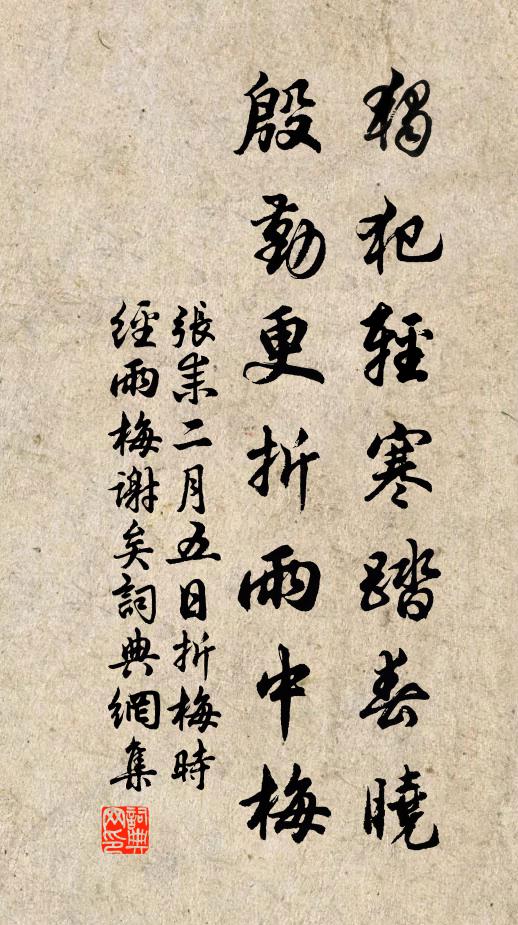 獨犯輕寒踏春曉
殷勤更折雨中梅
張耒二月五日折梅時
經雨梅謝矣詞典網集
詞典
网印